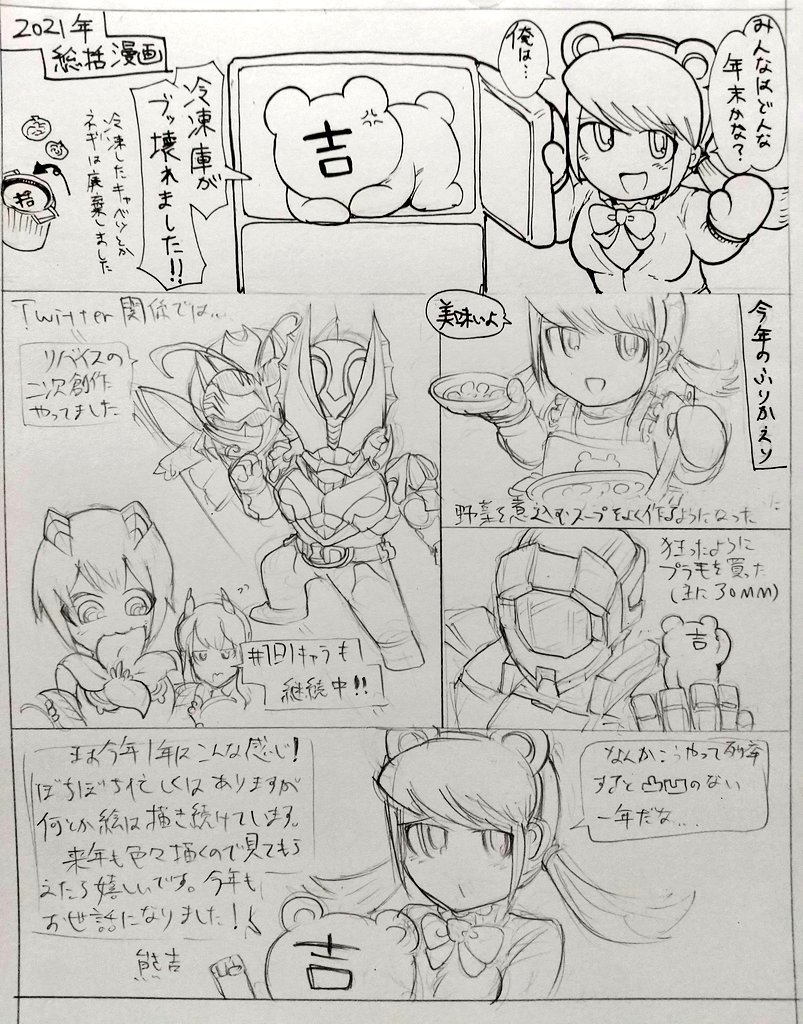 2021年
総括漫画
みんなはどんな
年末かな?
俺は…
吉
冷凍庫が
ブッ壊れました!!
冷凍したキャベツとか
ネギは廃棄しました
捨
今年のふりかえり
美味いよ
野菜を煮込むスープをよく作るようになった
Twitter関係では…
リバイスの
二次創作
やってました
#1日1キャラも
継続中!!
狂ったように
プラモを買った
(主に30MM)
吉
なんかこうやって列挙
すると凸凹のない
一年だな…
まぁ今年1年はこんな感じ!
ぼちぼち忙しくはありますが
何とか絵は描き続けています。
来年も色々描くので見てもら
えたら嬉しいです。今年も
お世話になりました!
熊吉
吉